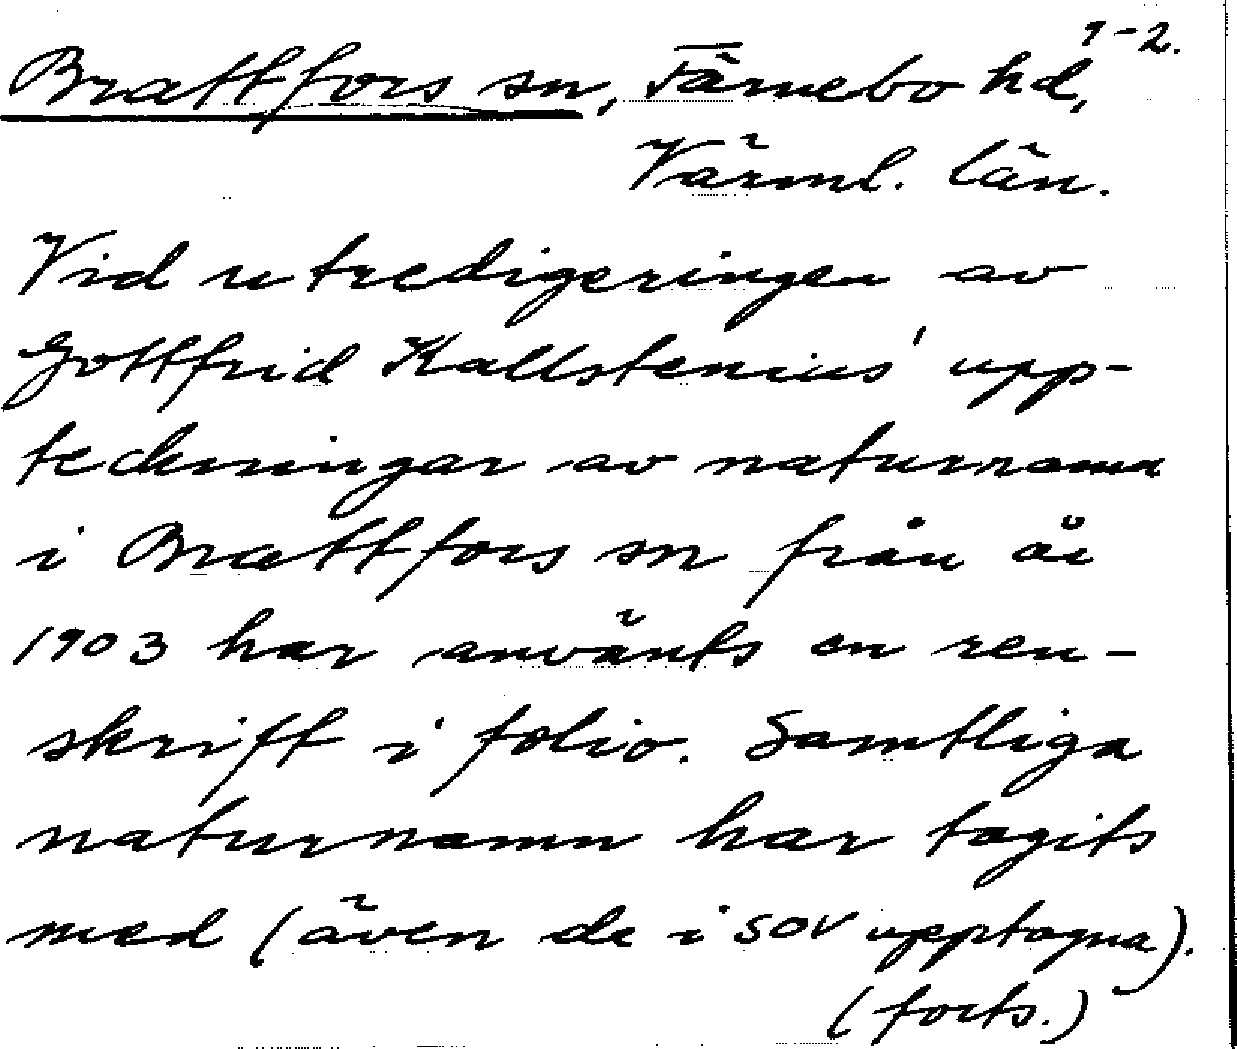 1-2.
Brattfors sn, Färnebo hd,
Värml. län.
Vid utredigeringen av
Gottfrid Kallstenius' upp-
teckningar av naturnamn
i Brattfors sn från år
1903 har använts en ren-
skrift i folio. Samtliga
naturnamn har tagits
med (även de i SOV upptagna).
(forts.)